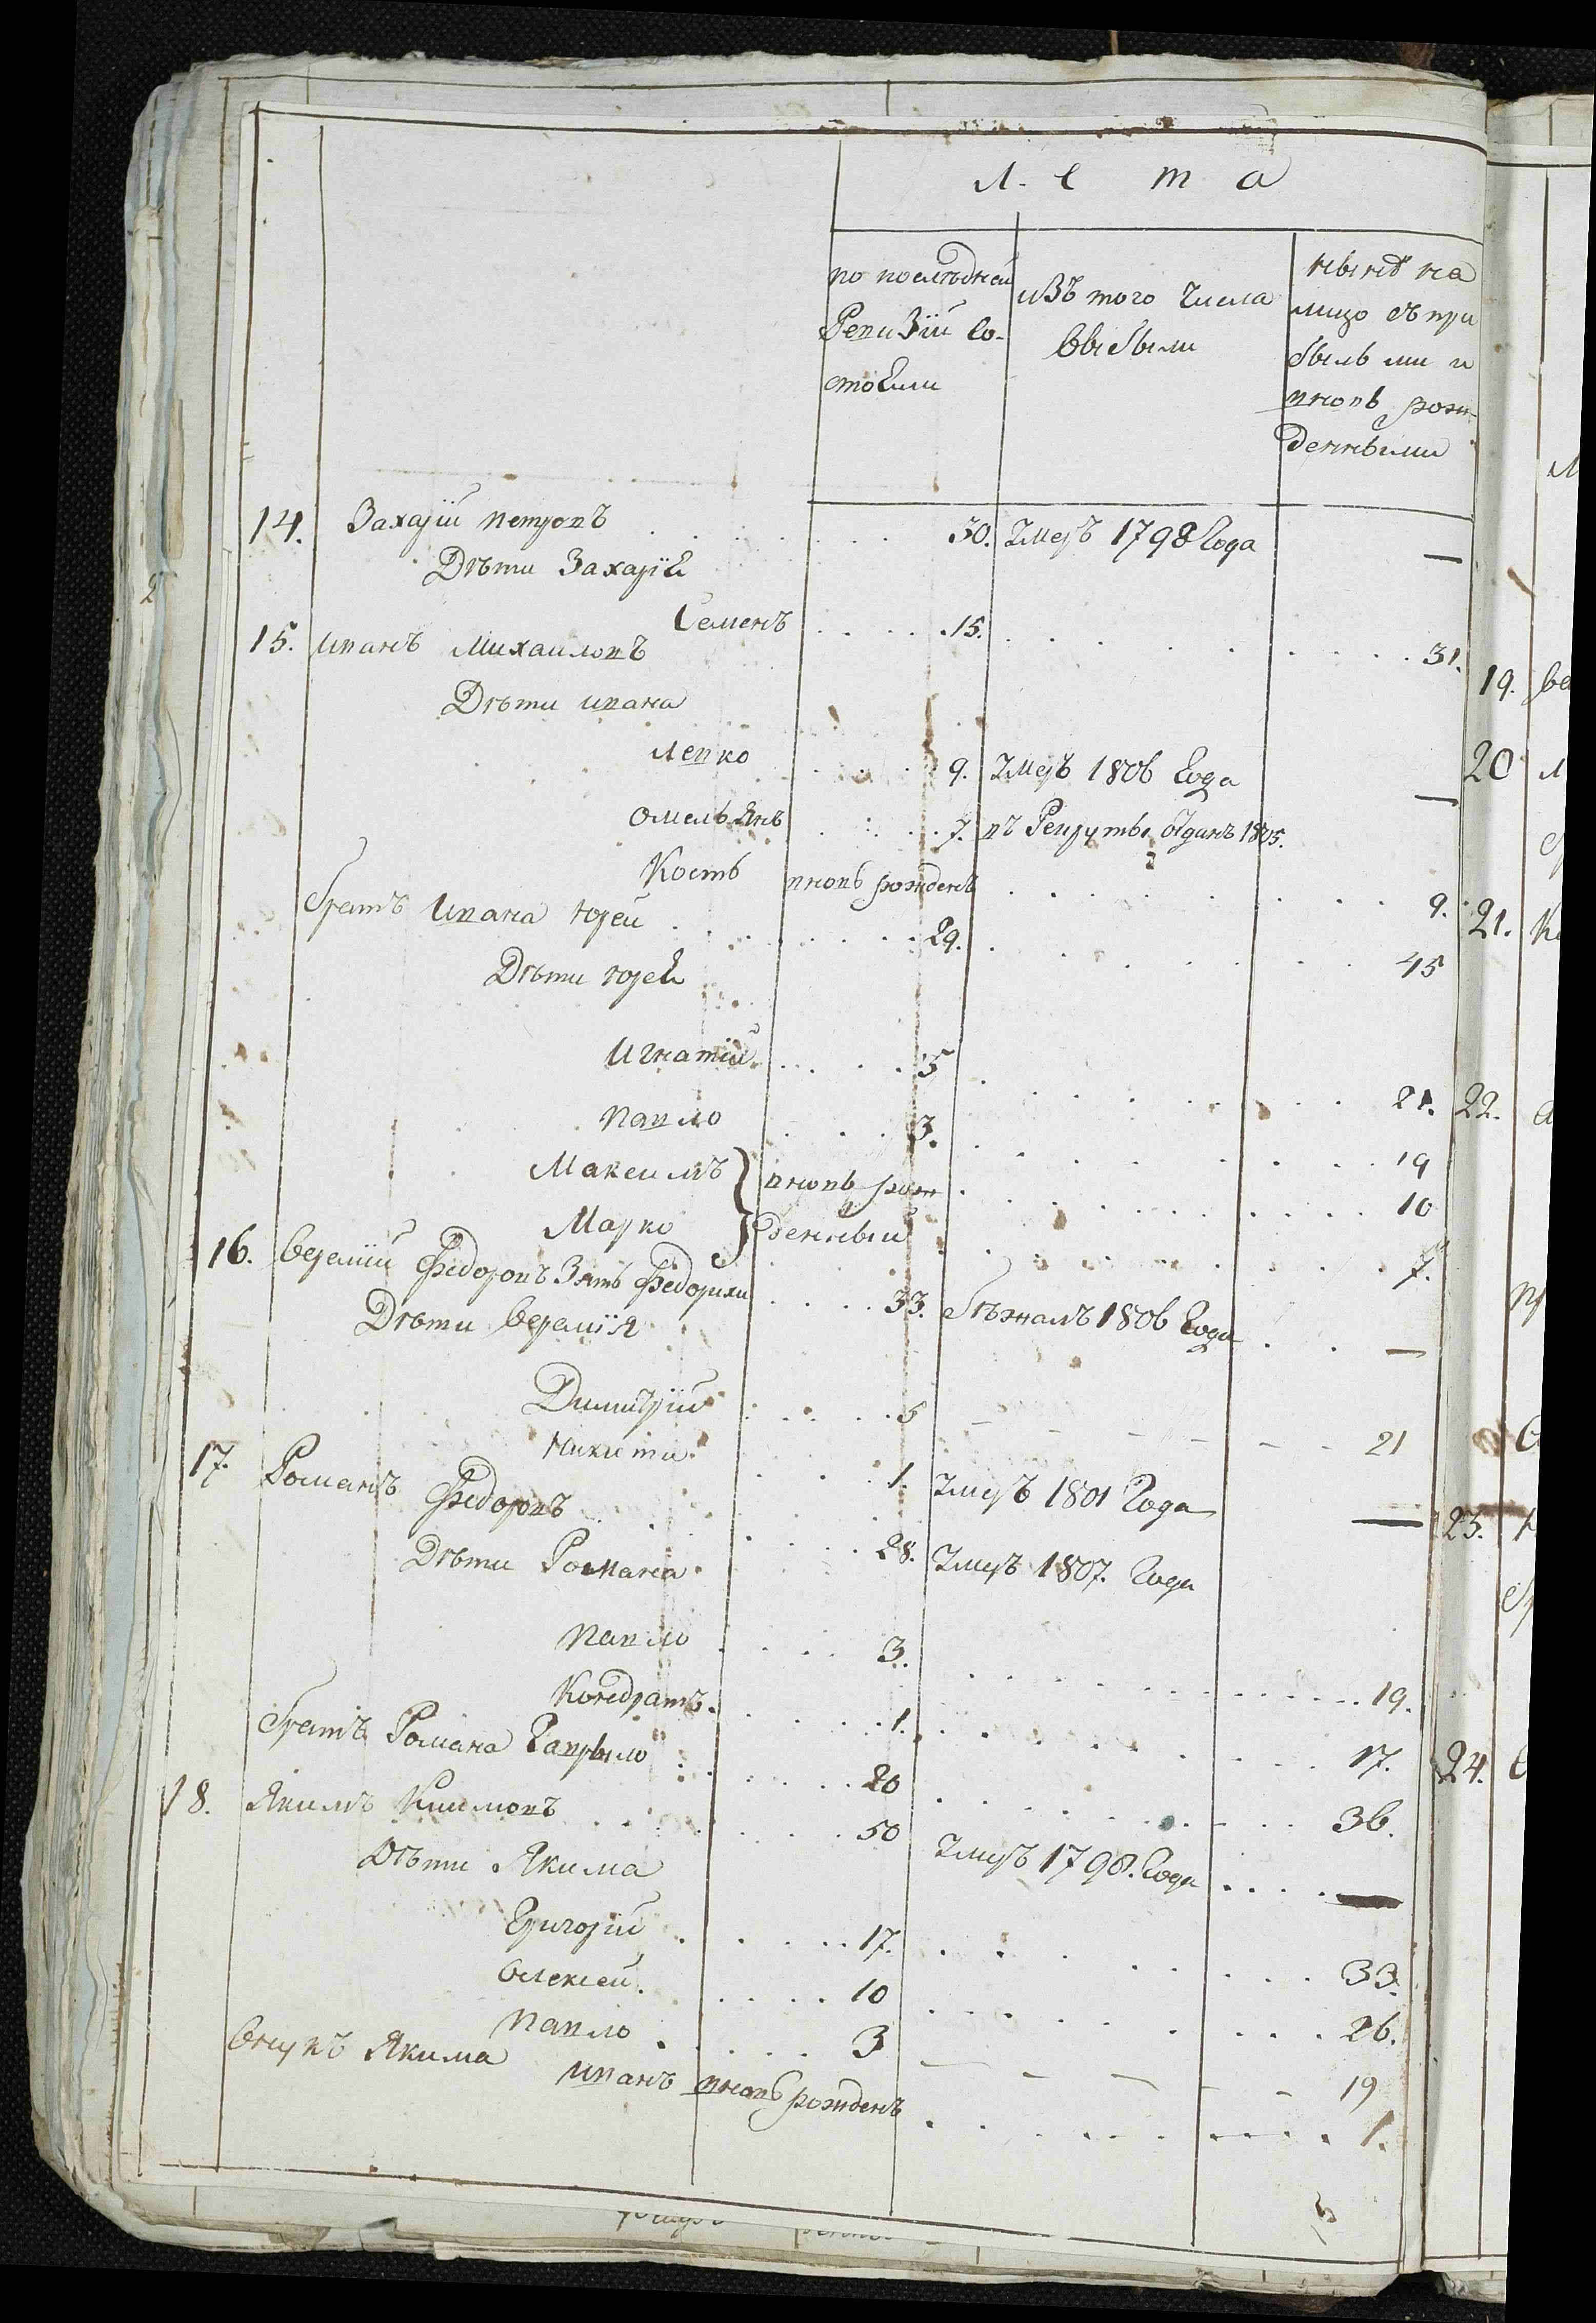 Лета
по послѣдней
Ревизіи со-
стояли
изъ того числа
выбыли
нынѣ на
лицо съ при
былыми и
вновь рож-
денными
14. Захарій Петровъ 30. умеръ 1798 Года —
Дѣти Захарія
Семенъ 15. 31.
15. Иванъ Михаиловъ
Дѣти Ивана
Левко 9. умеръ 1806 Года —
Омельянъ 7. въ Рекруты отданъ 1805.
Кость вновь рожденъ 9.
братъ Ивана Юрей 29. 45
Дѣти Юрея
Игнатій 5 21.
Павло 3. 19
Максимъ } вновь рож 10
Марко } денныи 7.
16. Веремій Федоровъ Зять Федорихи 33. бѣжалъ 1806 Года —
Дѣти Веремія
Димитрій 5 21
Никита 1. умеръ 1801 Года —
17. Романъ Федоровъ 28. умеръ 1807. Года
Дѣти Романа
Павло 3. 19.
Кондратъ 1. 17.
братъ Романа Гаврыло 20 36.
18. Якимъ Климовъ 50 умеръ 1798. Года —
Дѣти Якима
Григорій 17. 33.
Олексей 10 26.
Павло 3 19
Внукъ Якима Иванъ вновь рожденъ 1.
19.
20
21.
22.
23.
24.